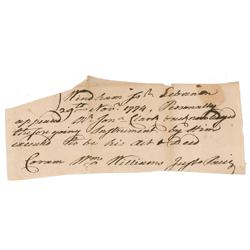 Windham ss. Lebanon
29th Novr. 1774, Personally
appeared Mr. Jona. Clark & acknowledged
the foregoing Instrument by Him
executed to be his Act & Deed
Coram Wm Williams Just Pacis